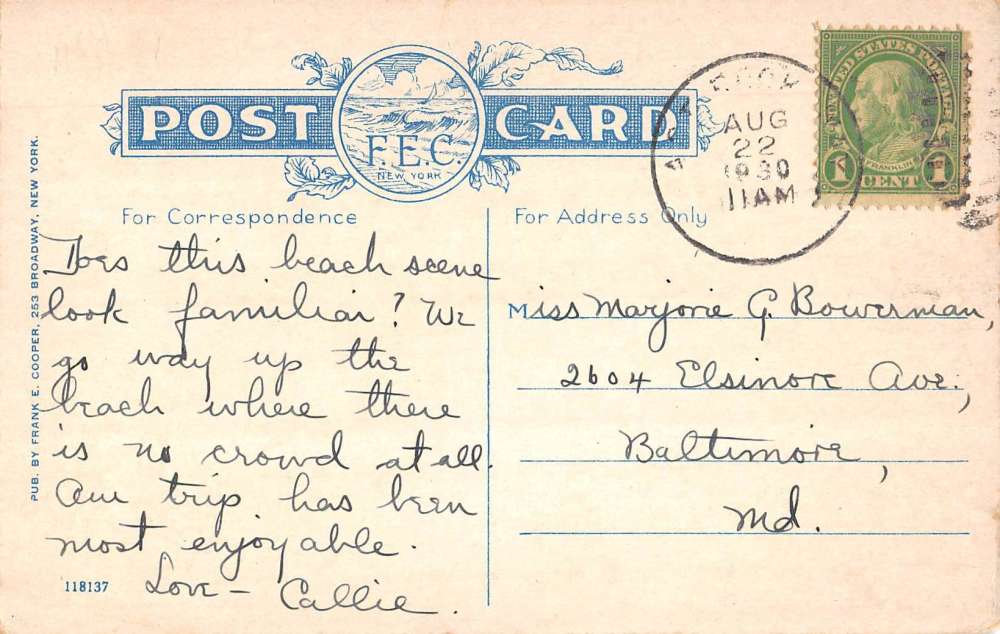 POST CARD
F.E.C
NEW YORK
AUG
22
1930
11AM
UNITED STATES POSTAGE
FRANKLIN
1 CENT 1
For Correspondence
For Address Only
Does this beach scene
look familiar? We
go way up the
beach where there
is no crowd at all.
Our trip has been
most enjoyable.
Love – Callie.
Miss Marjorie G. Bowerman,
2604 Elsinore Ave.,
Baltimore,
Md.
118137
PUB. BY FRANK E. COOPER, 253 BROADWAY, NEW YORK.